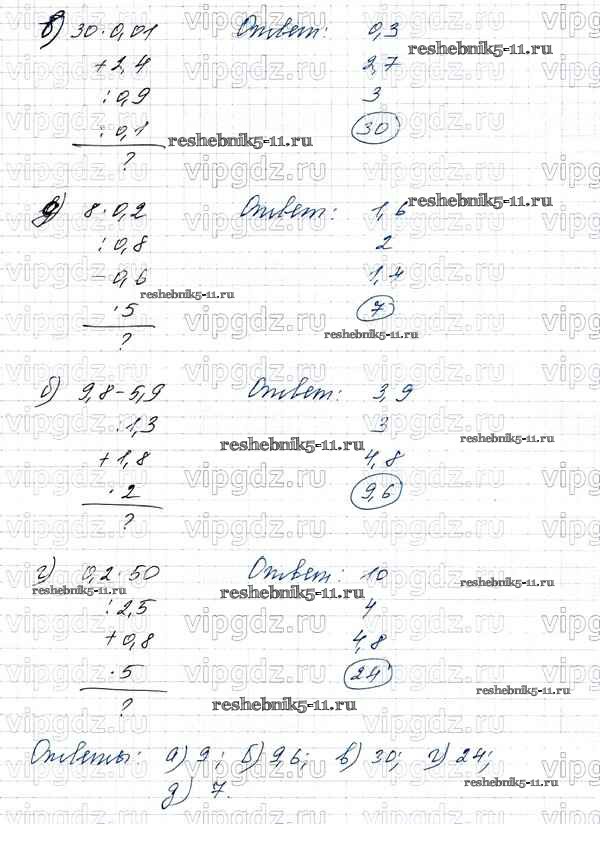 в) 30·0,01 Ответ: 0,3
+2,4 2,7
:0,9 3
:0,1 30
?
д) 8·0,2 Ответ: 1,6
:0,8 2
-0,6 1,4
·5 7
?
б) 9,8-5,9 Ответ: 3,9
:1,3 3
+1,8 4,8
·2 9,6
?
г) 0,2·50 Ответ: 10
:2,5 4
+0,8 4,8
·5 24
?
Ответы: а) 9; б) 9,6; в) 30; г) 24;
д) 7.
vipgdz.ru
reshebnik5-11.ru